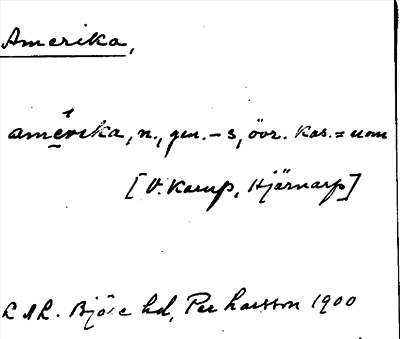 Amerika,
amérika, n., gen. -s, övr. kas. = nom
[V. Karup, Hjärnarp]
LAL. Bjäre hd, Per Larsson 1900